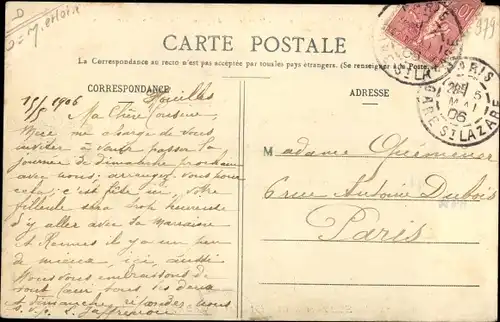 D
979
CARTE POSTALE
La Correspondance au recto n'est pas acceptée par tous les pays étrangers. (Se renseigner à la Poste.)
CORRESPONDANCE
ADRESSE
15/5 1906 Houilles
Ma Chère Cousine
Mère me charge de vous
inviter à venir passer la
journée de dimanche prochain
avec nous, arrangez vous pour
cela; c'est fête ici, votre
filleule sera trop heureuse
d'y aller avec sa marraine
A Rennes il y a un peu
de mieux, ici, aussi
Nous vous embrassons de
tout cœur tous les deux
A dimanche, répondez nous
s.v.p.
Madame Quémener
6 rue Antoine Dubois
Paris
PARIS
MAI
06
GARE ST LAZARE